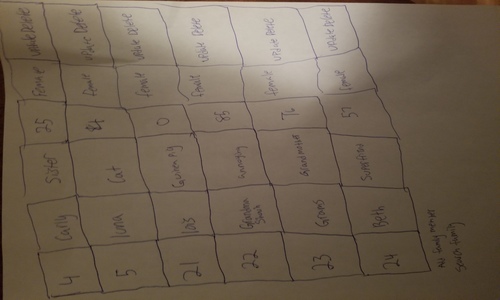 4 Carly Sister 25 female update Delete
5 luna Cat female update Delete
21 lois Guinea pig 0 female update Delete
22 Grandma 85 female update Delete
23 Grams Grandmother 76 female update Delete
24 Beth 57 female update Delete
Add family member
Search family